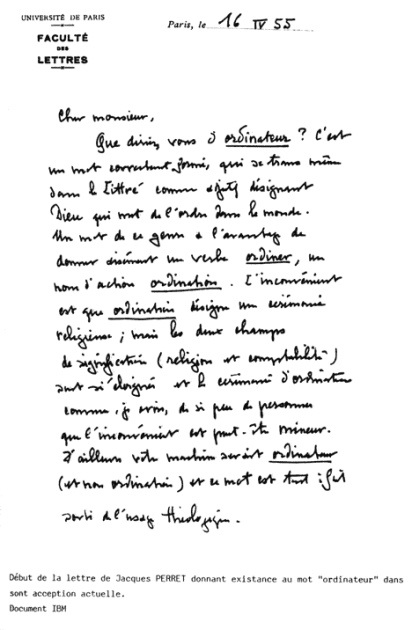 UNIVERSITÉ DE PARIS
FACULTÉ
DES
LETTRES
Paris, le 16 IV 55
Cher monsieur,
Que diriez vous d'ordinateur ? C'est
un mot correctement formé, qui se trouve même
dans le Littré comme adjectif désignant
Dieu qui met de l'ordre dans le monde.
Un mot de ce genre a l'avantage de
donner aisément un verbe ordiner, un
nom d'action ordination. L'inconvénient
est que ordination désigne une cérémonie
religieuse ; mais les deux champs
de signification (religion et comptabilité)
sont si éloignés et la cérémonie d'ordination
connue, je crois, de si peu de personnes
que l'inconvénient est peut-être mineur.
D'ailleurs votre machine serait ordinateur
(et non ordination) et ce mot est tout à fait
sorti de l'usage théologique.
Début de la lettre de Jacques PERRET donnant existance au mot "ordinateur" dans
sont acception actuelle.
Document IBM